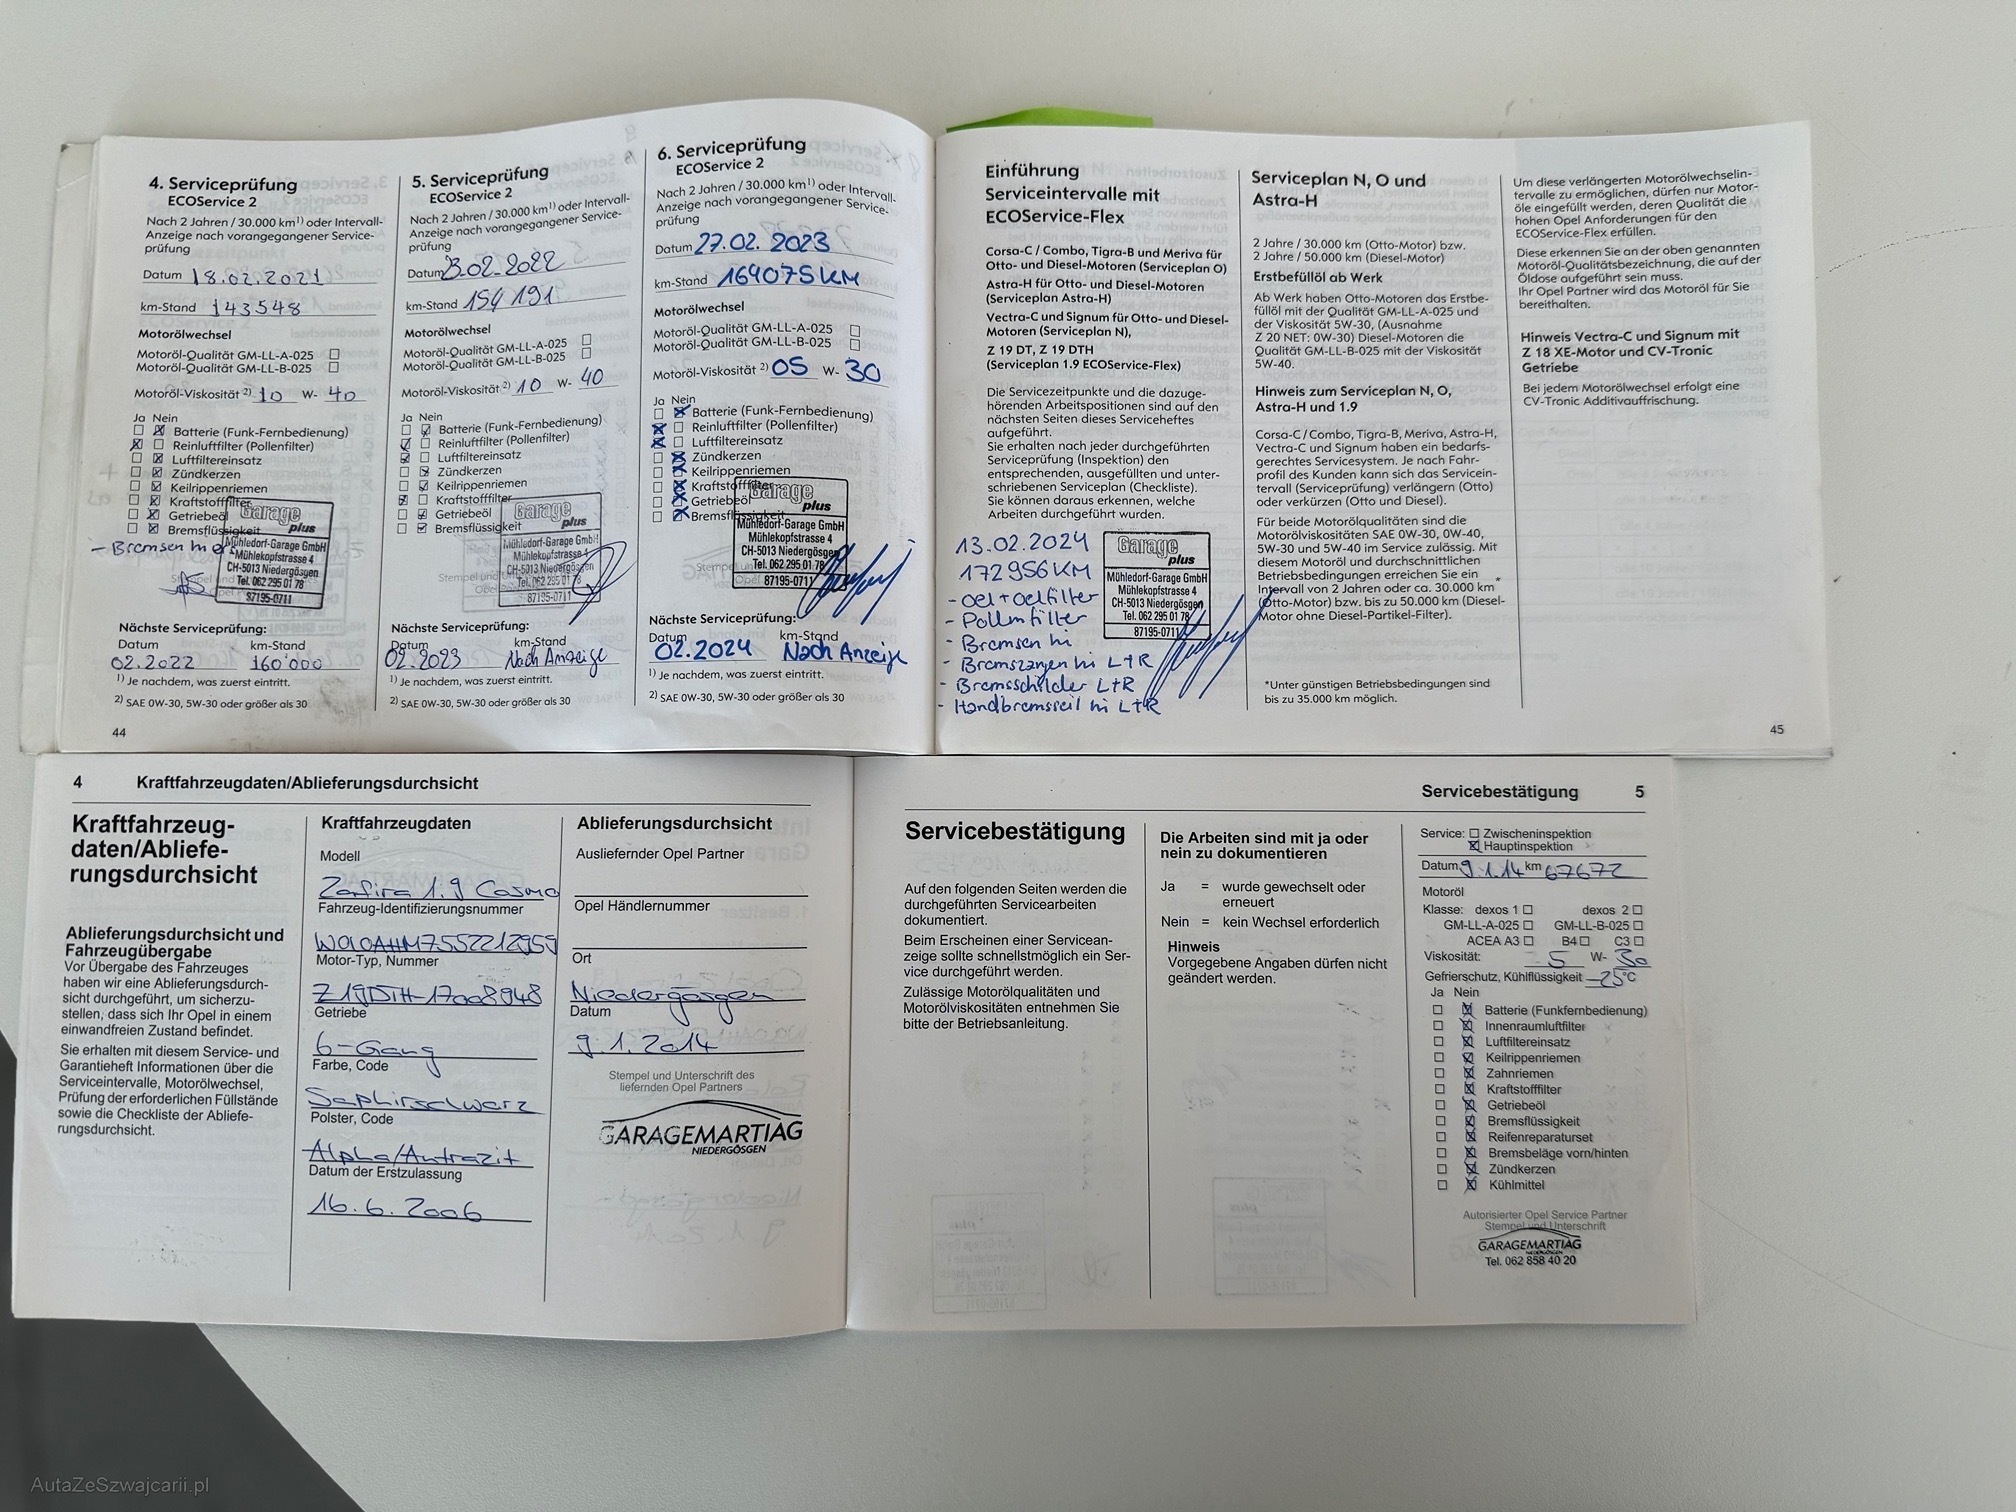 4. Serviceprüfung
ECOService 2
Nach 2 Jahren / 30.000 km¹⁾ oder Intervall-
Anzeige nach vorangegangener Service-
prüfung
Datum 18.02.2021
km-Stand 143548
Motorölwechsel
Motoröl-Qualität GM-LL-A-025 ☐
Motoröl-Qualität GM-LL-B-025 ☐
Motoröl-Viskosität ²⁾ 10 W- 40
Ja Nein
☐ ☒ Batterie (Funk-Fernbedienung)
☒ ☐ Reinluftfilter (Pollenfilter)
☐ ☒ Luftfiltereinsatz
☐ ☒ Zündkerzen
☐ ☒ Keilrippenriemen
☐ ☒ Kraftstofffilter
☐ ☒ Getriebeöl
☐ ☒ Bremsflüssigkeit
- Bremsen hi
Garage
plus
Mühledorf-Garage GmbH
Mühlekopfstrasse 4
CH-5013 Niedergösgen
Tel. 062 295 01 78
87195-0711
Nächste Serviceprüfung:
Datum km-Stand
02.2022 160'000
¹⁾ Je nachdem, was zuerst eintritt.
²⁾ SAE 0W-30, 5W-30 oder größer als 30
44
5. Serviceprüfung
ECOService 2
Nach 2 Jahren / 30.000 km¹⁾ oder Intervall-
Anzeige nach vorangegangener Service-
prüfung
Datum 3.02.2022
km-Stand 154191
Motorölwechsel
Motoröl-Qualität GM-LL-A-025 ☐
Motoröl-Qualität GM-LL-B-025 ☐
Motoröl-Viskosität ²⁾ 10 W- 40
Ja Nein
☐ ☑ Batterie (Funk-Fernbedienung)
☑ ☐ Reinluftfilter (Pollenfilter)
☑ ☐ Luftfiltereinsatz
☐ ☑ Zündkerzen
☐ ☑ Keilrippenriemen
☑ ☐ Kraftstofffilter
☐ ☑ Getriebeöl
☐ ☑ Bremsflüssigkeit
Garage
plus
Mühledorf-Garage GmbH
Mühlekopfstrasse 4
CH-5013 Niedergösgen
Tel. 062 295 01 78
87195-0711
Nächste Serviceprüfung:
Datum km-Stand
02.2023 Nach Anzeige
¹⁾ Je nachdem, was zuerst eintritt.
²⁾ SAE 0W-30, 5W-30 oder größer als 30
6. Serviceprüfung
ECOService 2
Nach 2 Jahren / 30.000 km¹⁾ oder Intervall-
Anzeige nach vorangegangener Service-
prüfung
Datum 27.02.2023
km-Stand 164075 KM
Motorölwechsel
Motoröl-Qualität GM-LL-A-025 ☐
Motoröl-Qualität GM-LL-B-025 ☐
Motoröl-Viskosität ²⁾ 05 W- 30
Ja Nein
☐ ☒ Batterie (Funk-Fernbedienung)
☒ ☐ Reinluftfilter (Pollenfilter)
☒ ☐ Luftfiltereinsatz
☐ ☒ Zündkerzen
☐ ☒ Keilrippenriemen
☐ ☒ Kraftstofffilter
☐ ☒ Getriebeöl
☐ ☒ Bremsflüssigkeit
Garage
plus
Mühledorf-Garage GmbH
Mühlekopfstrasse 4
CH-5013 Niedergösgen
Tel. 062 295 01 78
87195-0711
Nächste Serviceprüfung:
Datum km-Stand
02.2024 Nach Anzeige
¹⁾ Je nachdem, was zuerst eintritt.
²⁾ SAE 0W-30, 5W-30 oder größer als 30
Einführung
Serviceintervalle mit
ECOService-Flex
Corsa-C / Combo, Tigra-B und Meriva für
Otto- und Diesel-Motoren (Serviceplan O)
Astra-H für Otto- und Diesel-Motoren
(Serviceplan Astra-H)
Vectra-C und Signum für Otto- und Diesel-
Motoren (Serviceplan N),
Z 19 DT, Z 19 DTH
(Serviceplan 1.9 ECOService-Flex)
Die Servicezeitpunkte und die dazuge-
hörenden Arbeitspositionen sind auf den
nächsten Seiten dieses Serviceheftes
aufgeführt.
Sie erhalten nach jeder durchgeführten
Serviceprüfung (Inspektion) den
entsprechenden, ausgefüllten und unter-
schriebenen Serviceplan (Checkliste).
Sie können daraus erkennen, welche
Arbeiten durchgeführt wurden.
13.02.2024
172956 KM
- Oel + oelfilter
- Pollenfilter
- Bremsen hi
- Bremszangen hi L+R
- Bremsschilder L+R
- Handbremsseil hi L+R
Garage
plus
Mühledorf-Garage GmbH
Mühlekopfstrasse 4
CH-5013 Niedergösgen
Tel. 062 295 01 78
87195-0711
Serviceplan N, O und
Astra-H
2 Jahre / 30.000 km (Otto-Motor) bzw.
2 Jahre / 50.000 km (Diesel-Motor)
Erstbefüllöl ab Werk
Ab Werk haben Otto-Motoren das Erstbe-
füllöl mit der Qualität GM-LL-A-025 und
der Viskosität 5W-30, (Ausnahme
Z 20 NET: 0W-30) Diesel-Motoren die
Qualität GM-LL-B-025 mit der Viskosität
5W-40.
Hinweis zum Serviceplan N, O,
Astra-H und 1.9
Corsa-C / Combo, Tigra-B, Meriva, Astra-H,
Vectra-C und Signum haben ein bedarfs-
gerechtes Servicesystem. Je nach Fahr-
profil des Kunden kann sich das Servicein-
tervall (Serviceprüfung) verlängern (Otto)
oder verkürzen (Otto und Diesel).
Für beide Motorölqualitäten sind die
Motorölviskositäten SAE 0W-30, 0W-40,
5W-30 und 5W-40 im Service zulässig. Mit
diesem Motoröl und durchschnittlichen
Betriebsbedingungen erreichen Sie ein
Intervall von 2 Jahren oder ca. 30.000 km*
(Otto-Motor) bzw. bis zu 50.000 km (Diesel-
Motor ohne Diesel-Partikel-Filter).
*Unter günstigen Betriebsbedingungen sind
bis zu 35.000 km möglich.
Um diese verlängerten Motorölwechselin-
tervalle zu ermöglichen, dürfen nur Motor-
öle eingefüllt werden, deren Qualität die
hohen Opel Anforderungen für den
ECOService-Flex erfüllen.
Diese erkennen Sie an der oben genannten
Motoröl-Qualitätsbezeichnung, die auf der
Öldose aufgeführt sein muss.
Ihr Opel Partner wird das Motoröl für Sie
bereithalten.
Hinweis Vectra-C und Signum mit
Z 18 XE-Motor und CV-Tronic
Getriebe
Bei jedem Motorölwechsel erfolgt eine
CV-Tronic Additivauffrischung.
45
4 Kraftfahrzeugdaten/Ablieferungsdurchsicht
Kraftfahrzeug-
daten/Abliefe-
rungsdurchsicht
Ablieferungsdurchsicht und
Fahrzeugübergabe
Vor Übergabe des Fahrzeuges
haben wir eine Ablieferungsdurch-
sicht durchgeführt, um sicherzu-
stellen, dass sich Ihr Opel in einem
einwandfreien Zustand befindet.
Sie erhalten mit diesem Service- und
Garantieheft Informationen über die
Serviceintervalle, Motorölwechsel,
Prüfung der erforderlichen Füllstände
sowie die Checkliste der Abliefe-
rungsdurchsicht.
Kraftfahrzeugdaten
Modell
Zafira 1.9 Cosmo
Fahrzeug-Identifizierungsnummer
W0L0AHM7552212959
Motor-Typ, Nummer
Z19DTH-17008948
Getriebe
6-Gang
Farbe, Code
Saphirschwarz
Polster, Code
Alpha/Antrazit
Datum der Erstzulassung
16.6.2006
Ablieferungsdurchsicht
Ausliefernder Opel Partner
Opel Händlernummer
Ort
Niedergösgen
Datum
9.1.2014
Stempel und Unterschrift des
liefernden Opel Partners
GARAGEMARTIAG
NIEDERGÖSGEN
Servicebestätigung 5
Servicebestätigung
Auf den folgenden Seiten werden die
durchgeführten Servicearbeiten
dokumentiert.
Beim Erscheinen einer Servicean-
zeige sollte schnellstmöglich ein Ser-
vice durchgeführt werden.
Zulässige Motorölqualitäten und
Motorölviskositäten entnehmen Sie
bitte der Betriebsanleitung.
Die Arbeiten sind mit ja oder
nein zu dokumentieren
Ja = wurde gewechselt oder
erneuert
Nein = kein Wechsel erforderlich
Hinweis
Vorgegebene Angaben dürfen nicht
geändert werden.
Service: ☐ Zwischeninspektion
☒ Hauptinspektion
Datum 9.1.14 km 67672
Motoröl
Klasse: dexos 1 ☐ dexos 2 ☐
GM-LL-A-025 ☐ GM-LL-B-025 ☐
ACEA A3 ☐ B4 ☐ C3 ☐
Viskosität: 5 W- 30
Gefrierschutz, Kühlflüssigkeit -25°C
Ja Nein
☐ ☒ Batterie (Funkfernbedienung)
☐ ☒ Innenraumluftfilter
☐ ☒ Luftfiltereinsatz
☐ ☒ Keilrippenriemen
☐ ☒ Zahnriemen
☐ ☒ Kraftstofffilter
☐ ☒ Getriebeöl
☐ ☒ Bremsflüssigkeit
☐ ☒ Reifenreparaturset
☐ ☒ Bremsbeläge vorn/hinten
☐ ☒ Zündkerzen
☐ ☒ Kühlmittel
Autorisierter Opel Service Partner
Stempel und Unterschrift
GARAGEMARTIAG
NIEDERGÖSGEN
Tel. 062 858 40 20
AutaZeSzwajcarii.pl